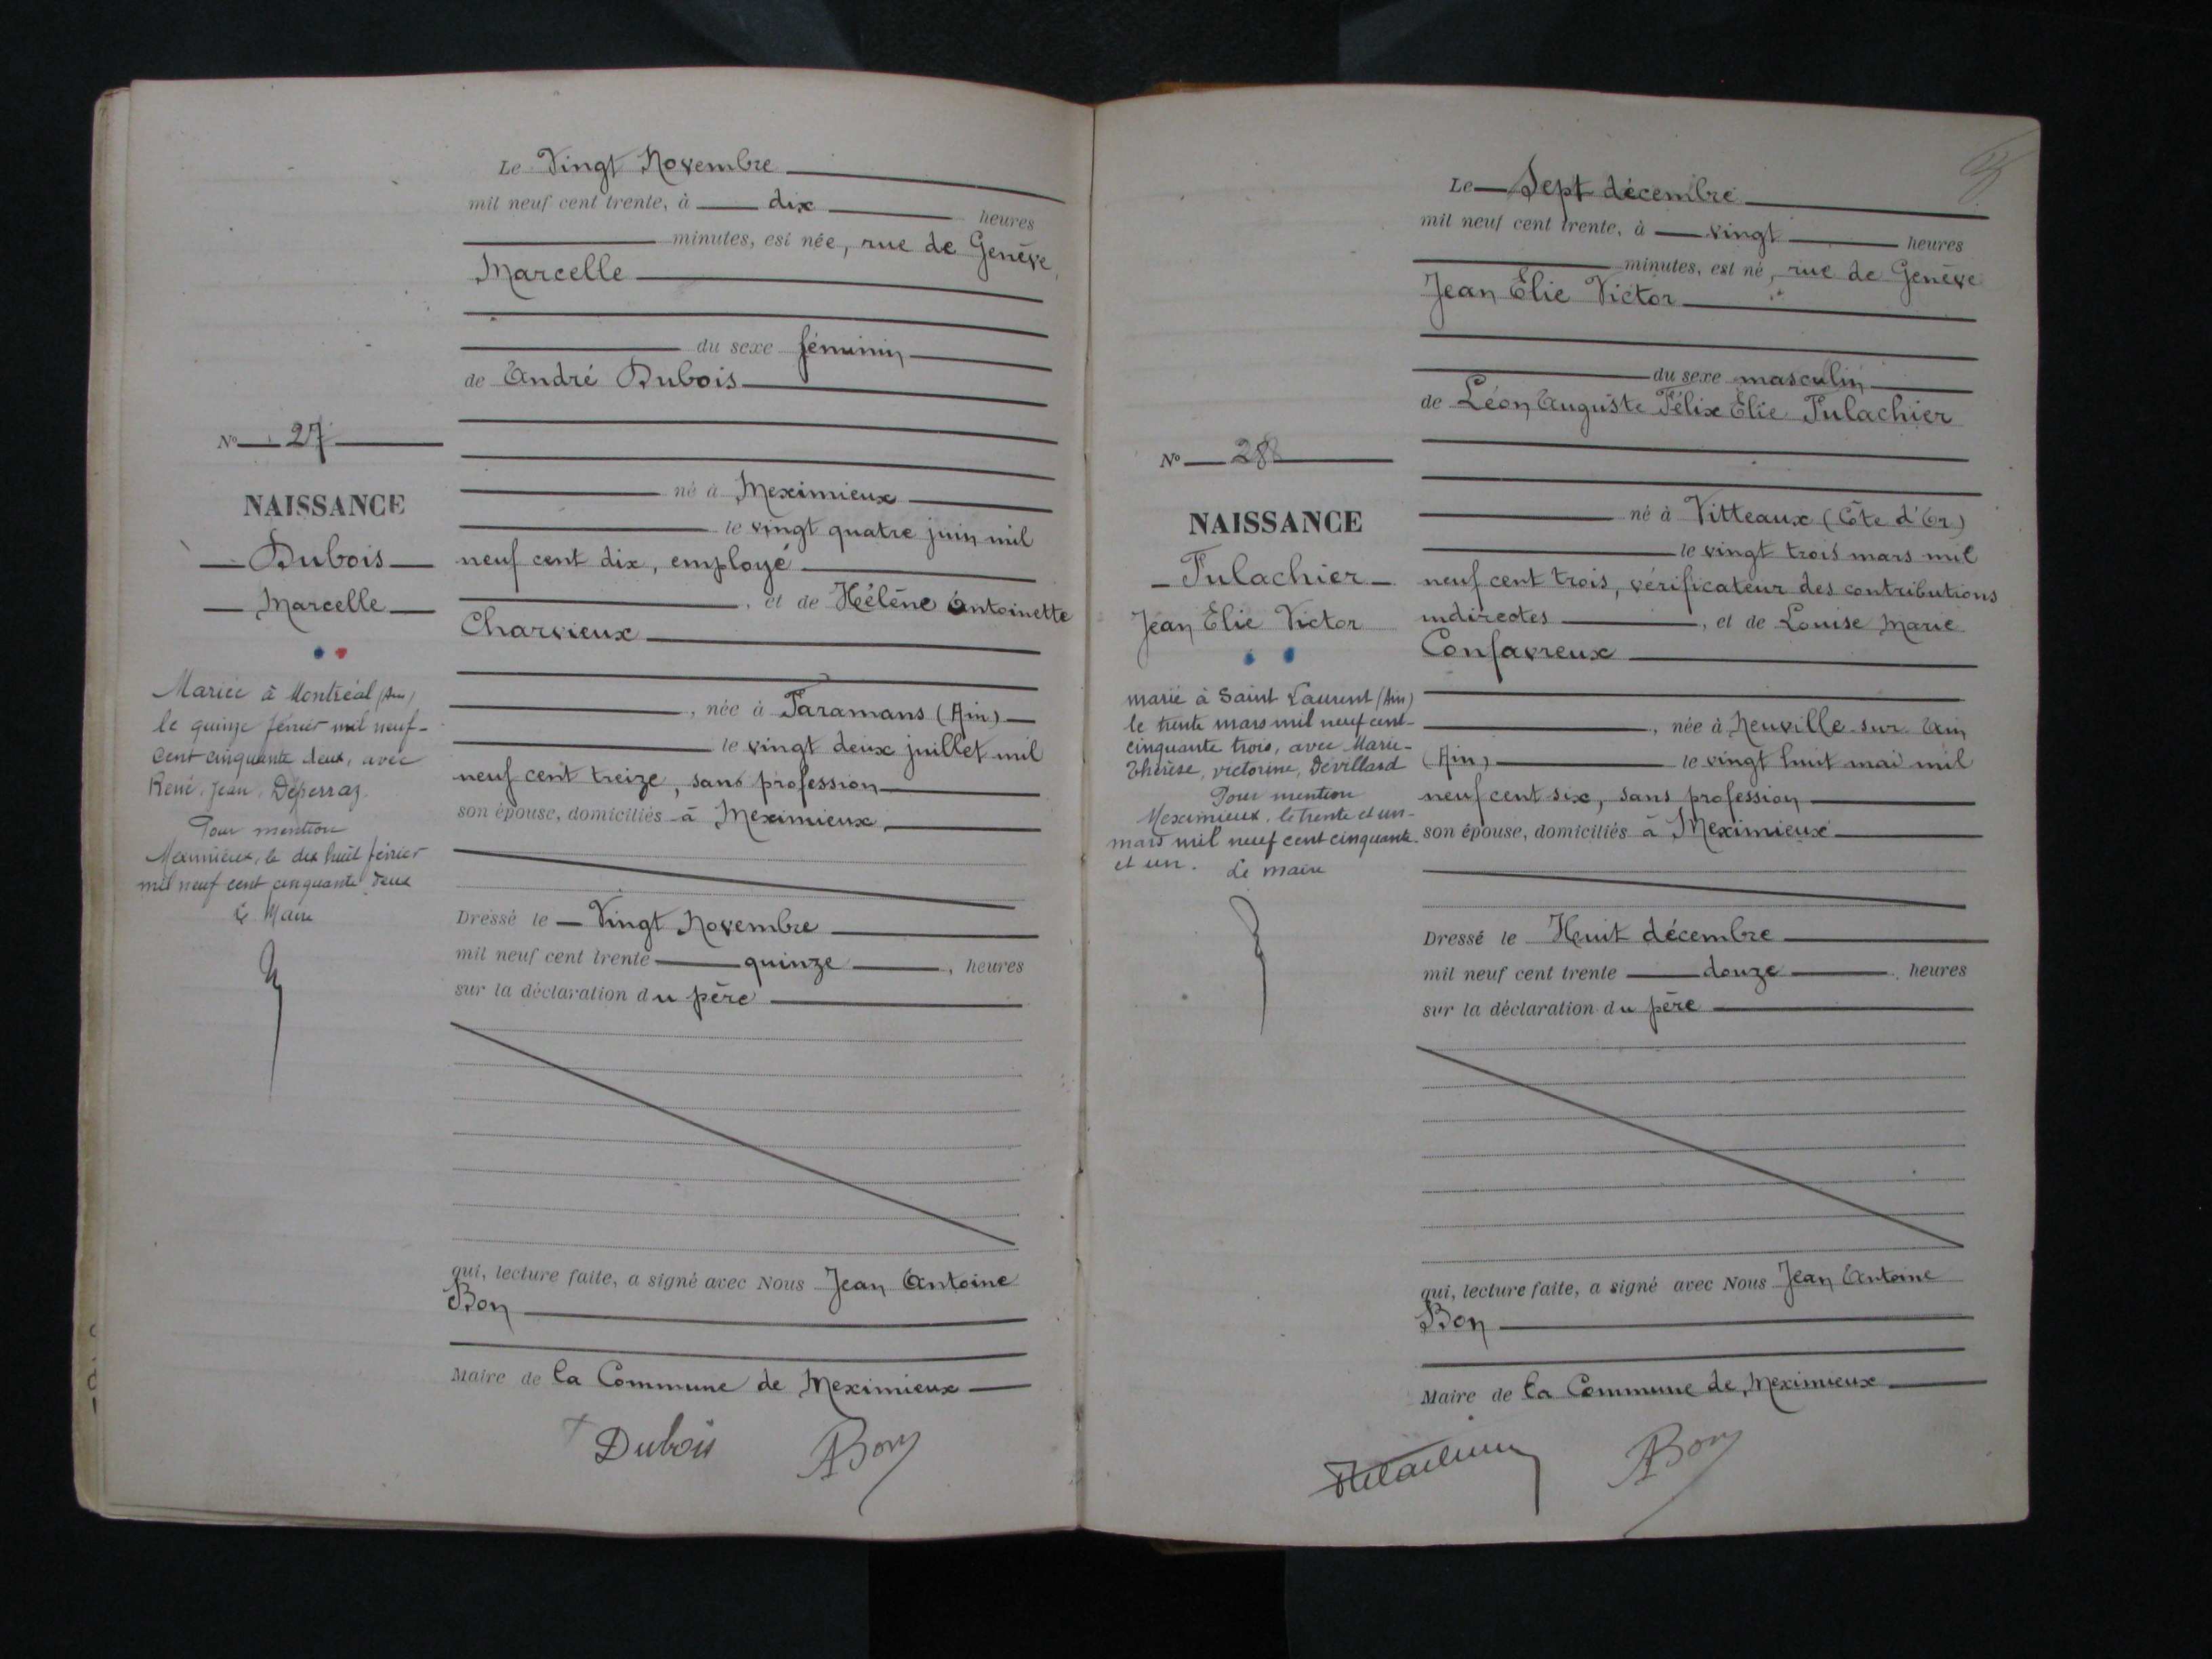 Le Vingt Novembre
mil neuf cent trente, à dix heures
minutes, est née, rue de Genève,
Marcelle
du sexe féminin
de André Dubois
né à Meximieux
le vingt quatre juin mil
neuf cent dix, employé
, et de Hélène Antoinette
Charvieux
, née à Faramans (Ain)
le vingt deux juillet mil
neuf cent treize, sans profession
son épouse, domiciliés à Meximieux
Dressé le Vingt Novembre
mil neuf cent trente quinze, heures
sur la déclaration du père
qui, lecture faite, a signé avec Nous Jean Antoine
Bon
Maire de la Commune de Meximieux
Dubois ABon
N° 27
NAISSANCE
Dubois
Marcelle
Mariée à Montréal (Ain)
le quinze février mil neuf-
cent cinquante deux, avec
René, Jean, Déperraz.
Pour mention
Meximieux, le dix huit février
mil neuf cent cinquante deux
le Maire
Le Sept décembre
mil neuf cent trente, à vingt heures
minutes, est né, rue de Genève
Jean Elie Victor
du sexe masculin
de Léon Auguste Félix Elie Fulachier
né à Vitteaux (Côte d'Or)
le vingt trois mars mil
neuf cent trois, vérificateur des contributions
indirectes, et de Louise Marie
Confavreux
, née à Neuville sur Ain
(Ain) le vingt huit mai mil
neuf cent six, sans profession
son épouse, domiciliés à Meximieux
Dressé le Huit décembre
mil neuf cent trente douze, heures
sur la déclaration du père
qui, lecture faite, a signé avec Nous Jean Antoine
Bon
Maire de la Commune de Meximieux
ABon
N° 28
NAISSANCE
Fulachier
Jean Elie Victor
marié à Saint Laurent (Ain)
le trente mars mil neuf cent-
cinquante trois, avec Marie-
Thérèse, victorine, Dévillard
Pour mention
Meximieux, le trente et un-
mars mil neuf cent cinquante-
et un. Le maire